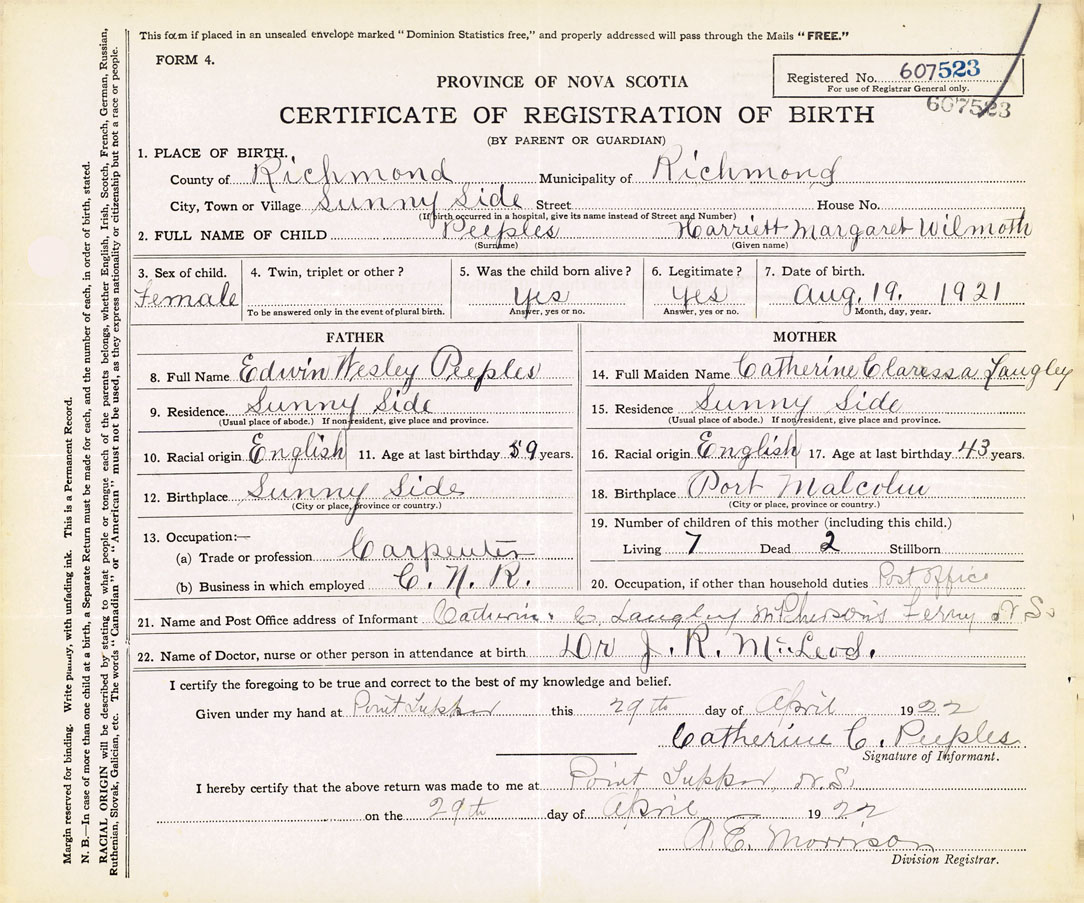 This form if placed in an unsealed envelope marked "Dominion Statistics free," and properly addressed will pass through the Mails "FREE."
FORM 4.
Registered No. 607523
For use of Registrar General only.
607523
PROVINCE OF NOVA SCOTIA
CERTIFICATE OF REGISTRATION OF BIRTH
(BY PARENT OR GUARDIAN)
1. PLACE OF BIRTH.
County of Richmond Municipality of Richmond
City, Town or Village Sunny Side Street House No.
(If birth occurred in a hospital, give its name instead of Street and Number)
2. FULL NAME OF CHILD Peeples Harriett Margaret Wilmoth
(Surname) (Given name)
3. Sex of child. 4. Twin, triplet or other? 5. Was the child born alive? 6. Legitimate? 7. Date of birth.
Female yes yes Aug. 19. 1921
To be answered only in the event of plural birth. Answer, yes or no. Answer, yes or no. Month, day, year.
FATHER
8. Full Name Edwin Wesley Peeples
9. Residence Sunny Side
(Usual place of abode.) If non-resident, give place and province.
10. Racial origin English 11. Age at last birthday 59 years.
12. Birthplace Sunny Side
(City or place, province or country.)
13. Occupation:—
(a) Trade or profession Carpenter
(b) Business in which employed C. N. R.
MOTHER
14. Full Maiden Name Catherine Claressa Langley
15. Residence Sunny Side
(Usual place of abode.) If non-resident, give place and province.
16. Racial origin English 17. Age at last birthday 43 years.
18. Birthplace Port Malcolm
(City or place, province or country.)
19. Number of children of this mother (including this child.)
Living 7 Dead 2 Stillborn
20. Occupation, if other than household duties Post Office
21. Name and Post Office address of Informant Catherine C. Langley McPherson's Ferry N S.
22. Name of Doctor, nurse or other person in attendance at birth Dr J. R. McLeod.
I certify the foregoing to be true and correct to the best of my knowledge and belief.
Given under my hand at Point Tupper this 29th day of April 1922
Catherine C. Peeples
Signature of Informant.
I hereby certify that the above return was made to me at Point Tupper, N.S.
on the 29th day of April 1922
A. E. Morrison
Division Registrar.
Margin reserved for binding. Write plainly, with unfading ink. This is a Permanent Record.
N. B.—In case of more than one child at a birth, a Separate Return must be made for each, and the number of each, in order of birth, stated.
RACIAL ORIGIN will be described by stating to what people or tongue each of the parents belongs, whether English, Irish, Scotch, French, German, Russian,
Ruthenian, Slovak, Galician, etc. The words "Canadian" or "American" must not be used, as they express nationality or citizenship but not a race or people.